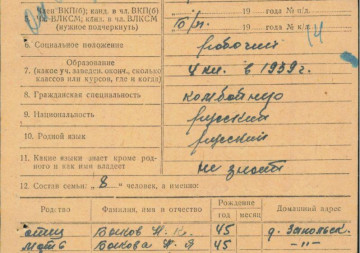 член ВКП(б); канд. в чл. ВКП(б)
чл. ВЛКСМ; канд. в чл. ВЛКСМ
(нужное подчеркнуть)
19 года №п/д.
б/п. 19 года №к/к. 14
6. Социальное положение рабочий
Образование
7. (какое уч. заведен. оконч., сколько
классов или курсов, где и когда) 4 кл. в 1939 г.
8. Гражданская специальность
9. Национальность русский
10. Родной язык русский
11. Какие языки знает кроме род-
ного и как ими владеет не знает
12. Состав семьи: "8" человек, а именно:
Родство Фамилия, имя и отчество Рождение Домашний адрес
год месяц
отец Волков 45 д.
мать Волкова 45 -"-